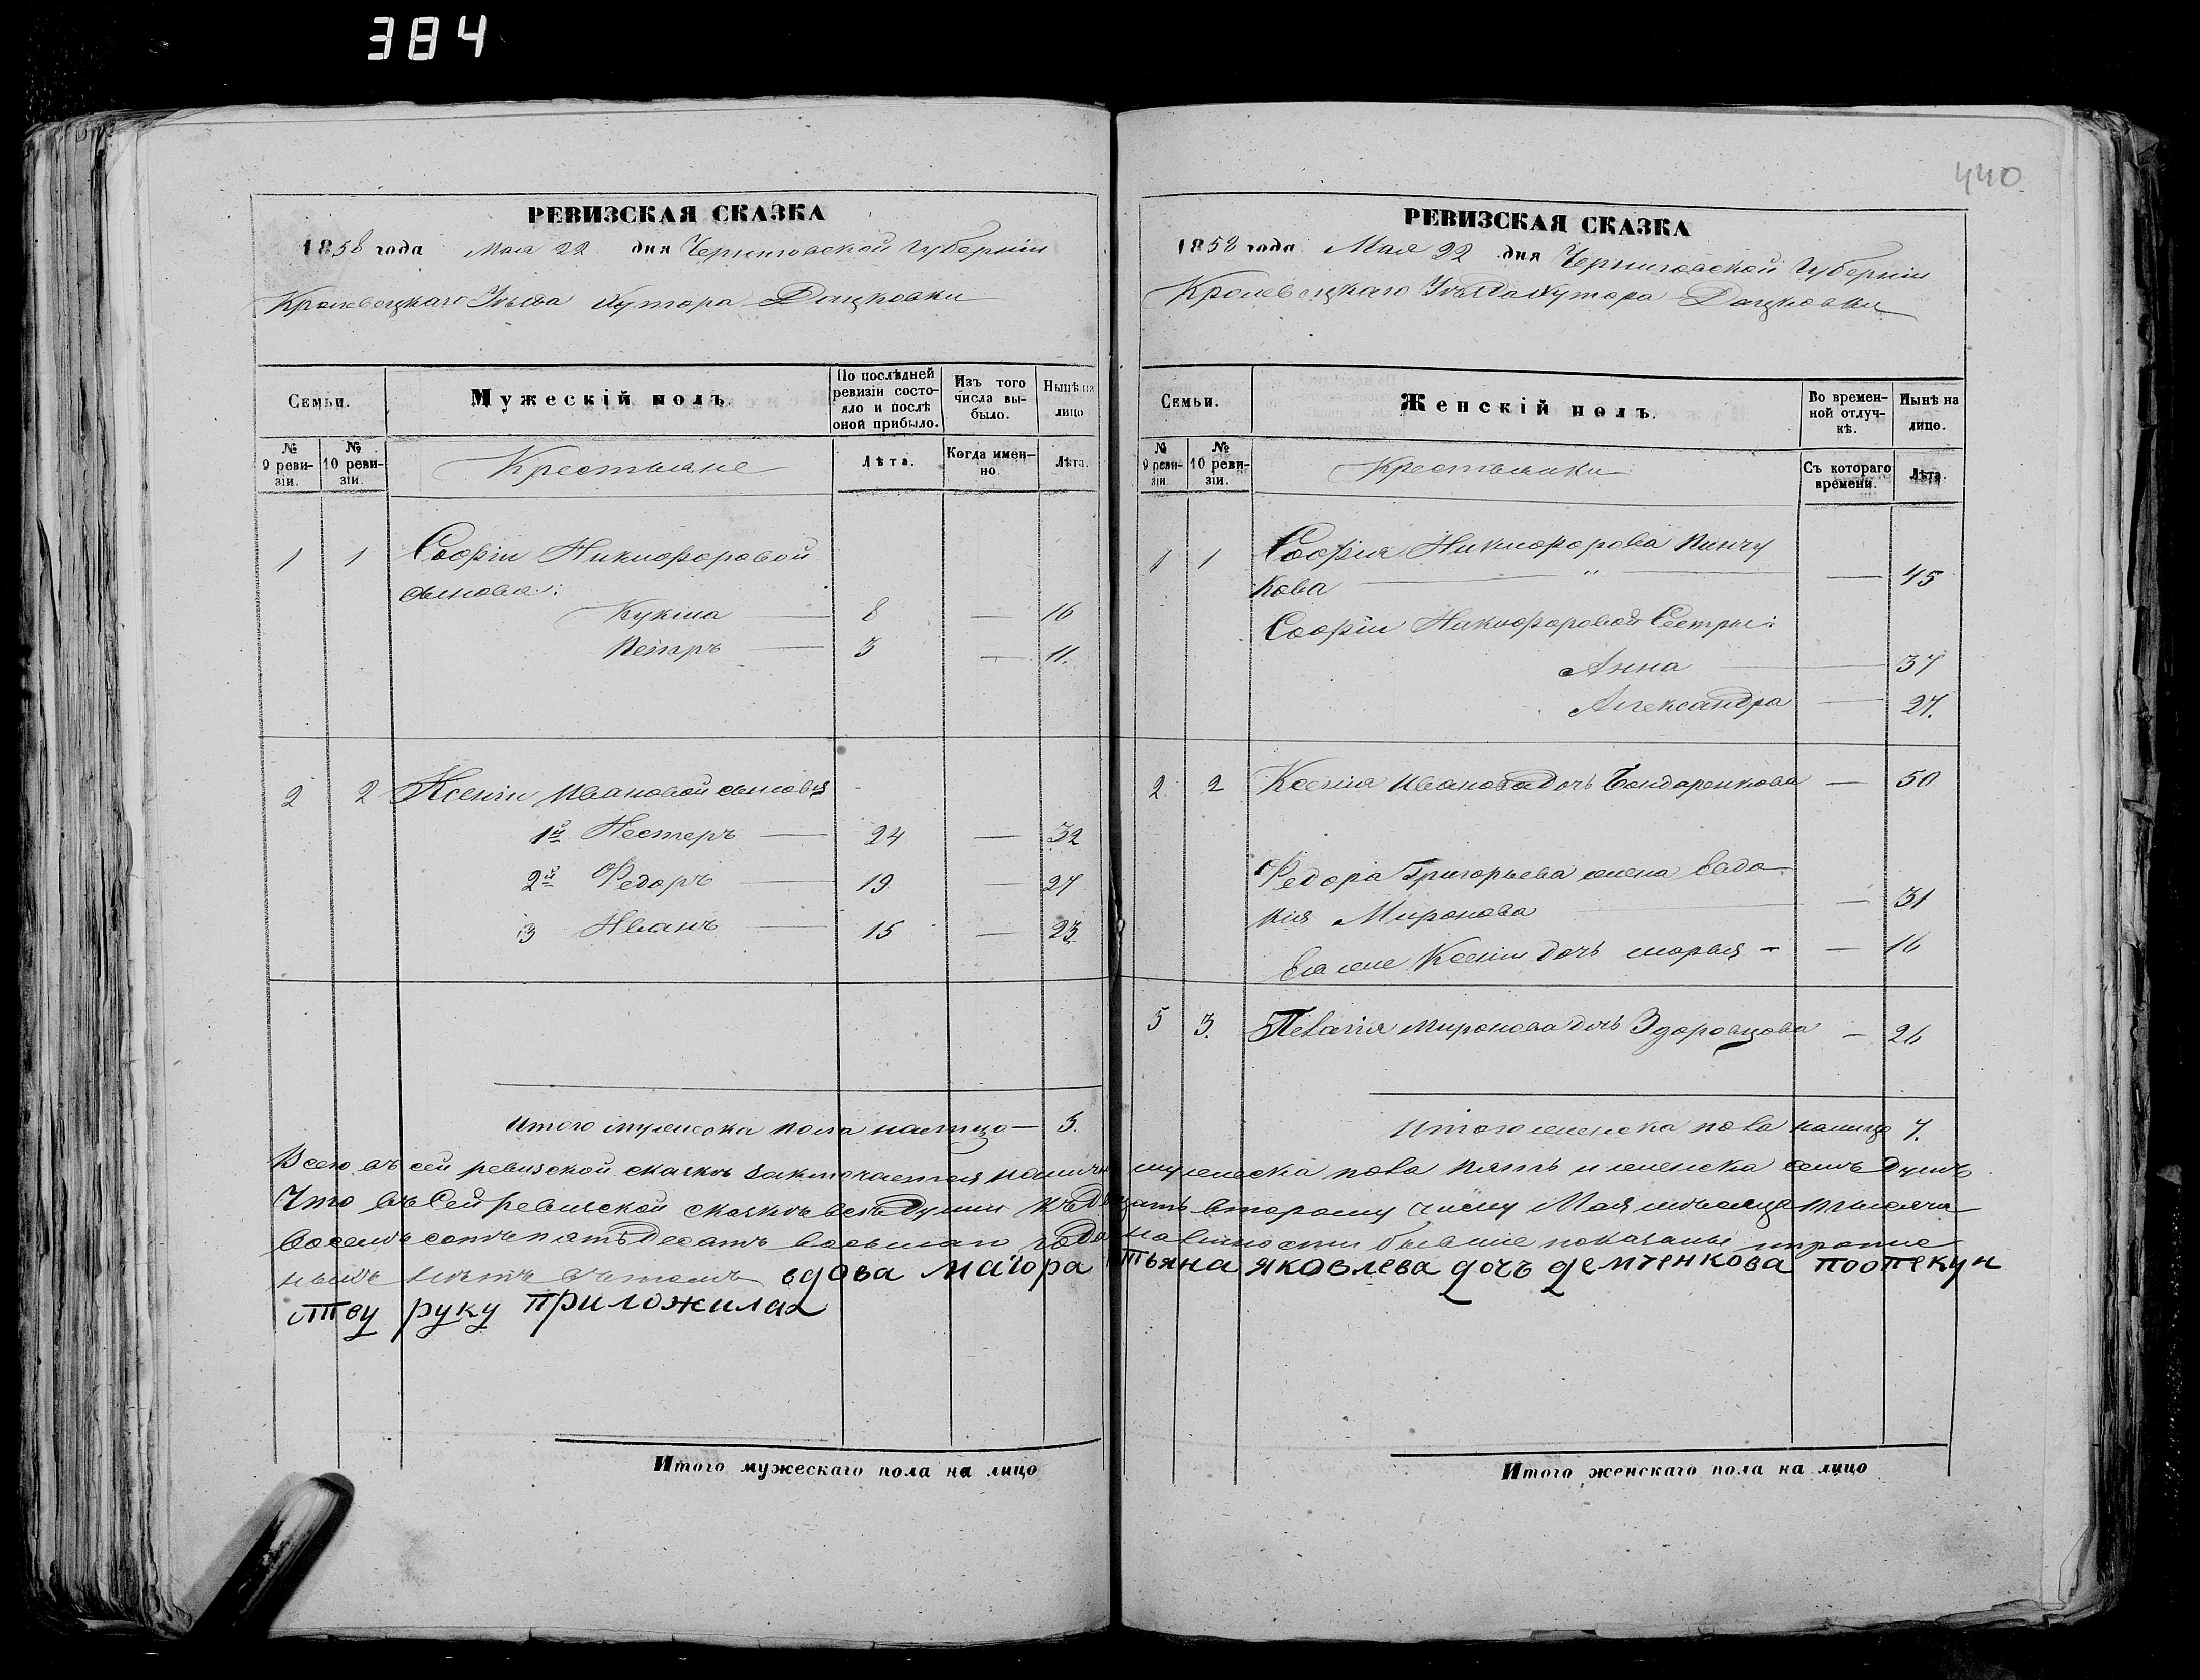 384
440
РЕВИЗСКАЯ СКАЗКА
1858 года Мая 22 дня Черниговской Губернии
Кролевецкаго Уѣзда Хутора Дацковки
Семьи.
Мужескій полъ.
По послѣдней ревизіи состояло и послѣ оной прибыло.
Изъ того числа выбыло.
Нынѣ на лицо
№ 9 ревизіи.
№ 10 ревизіи.
Крестьяне
Лѣта.
Когда именно.
Лѣта.
1 1 Софіи Никифоровой
сыновья:
Кукша — 8 — 16
Петръ — 3 — 11.
2 2 Ксеніи Ивановой сыновья
1й Нестеръ — 24 — 32
2й Федоръ — 19 — 27
3 Иванъ — 15 — 23
Итого мужеска пола налицо — 5.
РЕВИЗСКАЯ СКАЗКА
1858 года Мая 22 дня Черниговской Губерніи
Кролевецкаго Уѣзда Хутора Дацковки
Семьи.
Женскій полъ.
Во временной отлучкѣ.
Нынѣ на лицо.
№ 9 ревизіи.
№ 10 ревизіи.
Крестьянки
Съ котораго времени.
Лѣта.
1 1 Софія Никифорова Пинчу
кова — „ — — 45
Софіи Никифоровой Сестры:
Анна — 37
Александра — 27.
2 2 Ксенія Иванова дочь Бондаренкова — 50
Федора Григорьева жена Евдо
кія Миронова — 31
Ея же Ксеніи дочь Марья — — 16
5 3. Пелагія Миронова дочь Здоровцова — 26
Итого женска пола налицо 7.
Всего въ сей ревизской сказкѣ заключается налицо мужеска пола пять и женска семь душъ
Что въ Сей ревизской сказкѣ всѣ души къ двадцать второму числу Мая мѣсяца тысяча
восемь сотъ пятьдесятъ восьмаго года налицности бывшие показаны и пропис
ныхъ нѣтъ въ томъ вдова маіора Тьяна яковлева дочь демченкова поопекун
ству руку приложила
Итого мужескаго пола на лицо
Итого женскаго пола на лицо